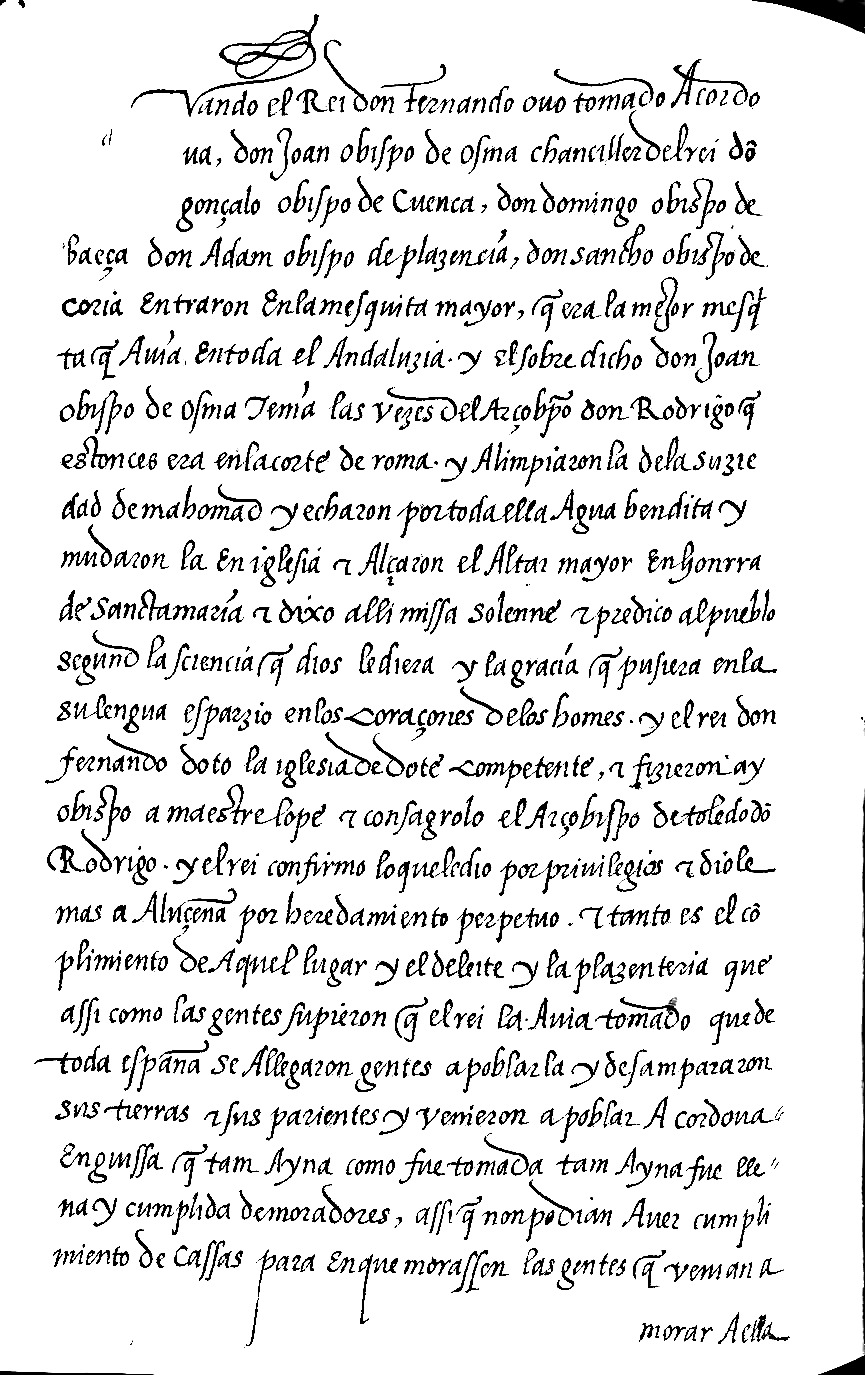 Vando el Rei don fernando ovo tomado Acordo
ua, don Joan obispo de osma chanciller del rei dõ
gonçalo obispo de Cuenca, don domingo obispo de
baeça don Adam obispo de plazencia, don sancho obispo de
coria Entraron Enlamesquita mayor, q̃ era la mejor mesq̃
ta q̃ Avia Entoda el Andaluzia. y Elsobre dicho don Joan
obispo de osma Tenia las vezes del Arçobpõ don Rodrigo q̃
estonces era enlacorte de roma. y Alimpiaronla dela suzie
dad demahomad y echaron portodaella Agua bendita y
mudaron la En iglesia ⁊ Alçaron el Altar mayor Enhonrra
de sanctamaria ⁊ dixo alli missa solenne ⁊ predico alpueblo
segund la sciencia q̃ dios lediera y lagracia q̃ pusiera enla
sulengua esparzio enlos coraçones delos homes. y el rei don
fernando doto la iglesia de dote competente, ⁊ fizieron ay
obispo a maestre lope ⁊ consagrolo el Arçobispo detoledo dõ
Rodrigo. y elrei confirmo loqueledio porprivilegios ⁊ diole
mas a Aluçena por heredamiento perpetuo. ⁊ tanto es el cõ
plimiento de Aquel lugar y eldeleite y la plazenteria que
assi como lasgentes supieron q̃ elrei la Avia tomado quede
toda españa se Allegaron gentes apoblarla y desampararon
sus tierras ⁊ sus parientes y venieron apoblar A cordoua
Enguissa q̃ tam Ayna como fue tomada tam Ayna fue lle
na y cumplida demoradores, assi q̃ nonpodian Aver cumpli
miento de Cassas para Enque morassen las gentes q̃ venian a
morar Aella